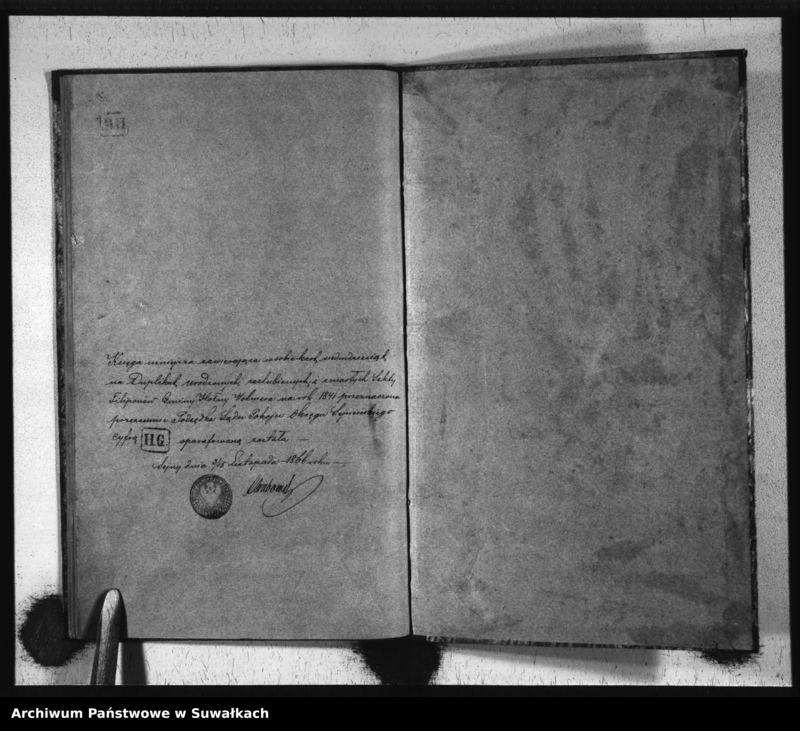 Księga niniejsza zawierająca w sobie kart
na Duplikat urodzonych, zaślubionych, i zmarłych Sekty
Filiponów Gminy Hołny Wolmera na rok 1841 przeznaczona
przezemnie Podsędka Sądu Pokoju Okręgu Sejneńskiego
cyfrą HG oparafowaną została —
Sejny dnia 3/15 Listopada 1866 roku —
Archiwum Państwowe w Suwałkach